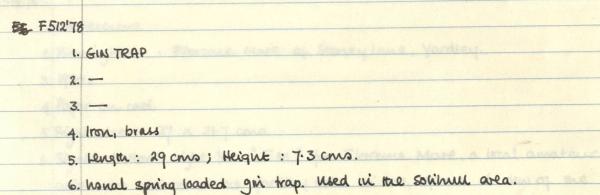 F512'78
1. GIN TRAP
2. —
3. —
4. Iron, brass
5. Length : 29 cms ; Height : 7.3 cms.
6. Usual spring loaded gin trap. Used in the Solihull area.